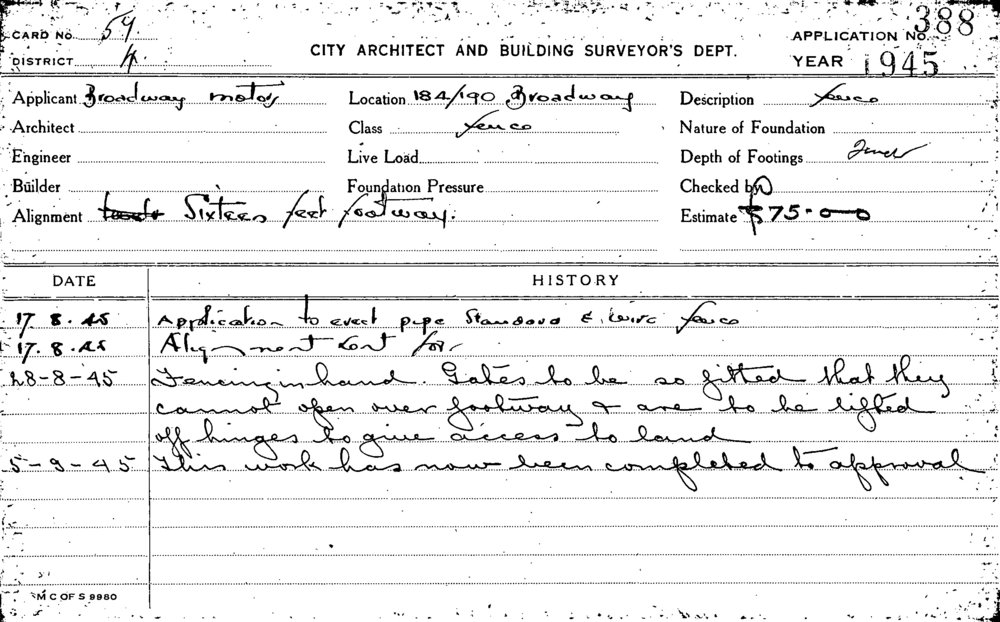 CARD No. 54
DISTRICT
CITY ARCHITECT AND BUILDING SURVEYOR'S DEPT.
APPLICATION No. 388
YEAR 1945
Applicant Broadway motors Location 184/190 Broadway Description fence
Architect Class fence Nature of Foundation
Engineer Live Load Depth of Footings
Builder Foundation Pressure Checked by
Alignment Sixteen feet footway. Estimate £75-0-0
DATE HISTORY
17.8.45 Application to erect pipe Standard & wire fence
17.8.45 Alignment Sent for
28-8-45 Fencing in hand. Gates to be so fitted that they
cannot open over footway & are to be lifted
off hinges to give access to land
5-9-45 This work has now been completed to approval
M C OF S 9980